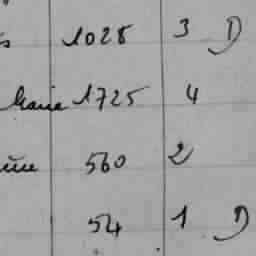 1028 3 D
Marie 1725 4
560 2
54 1 D